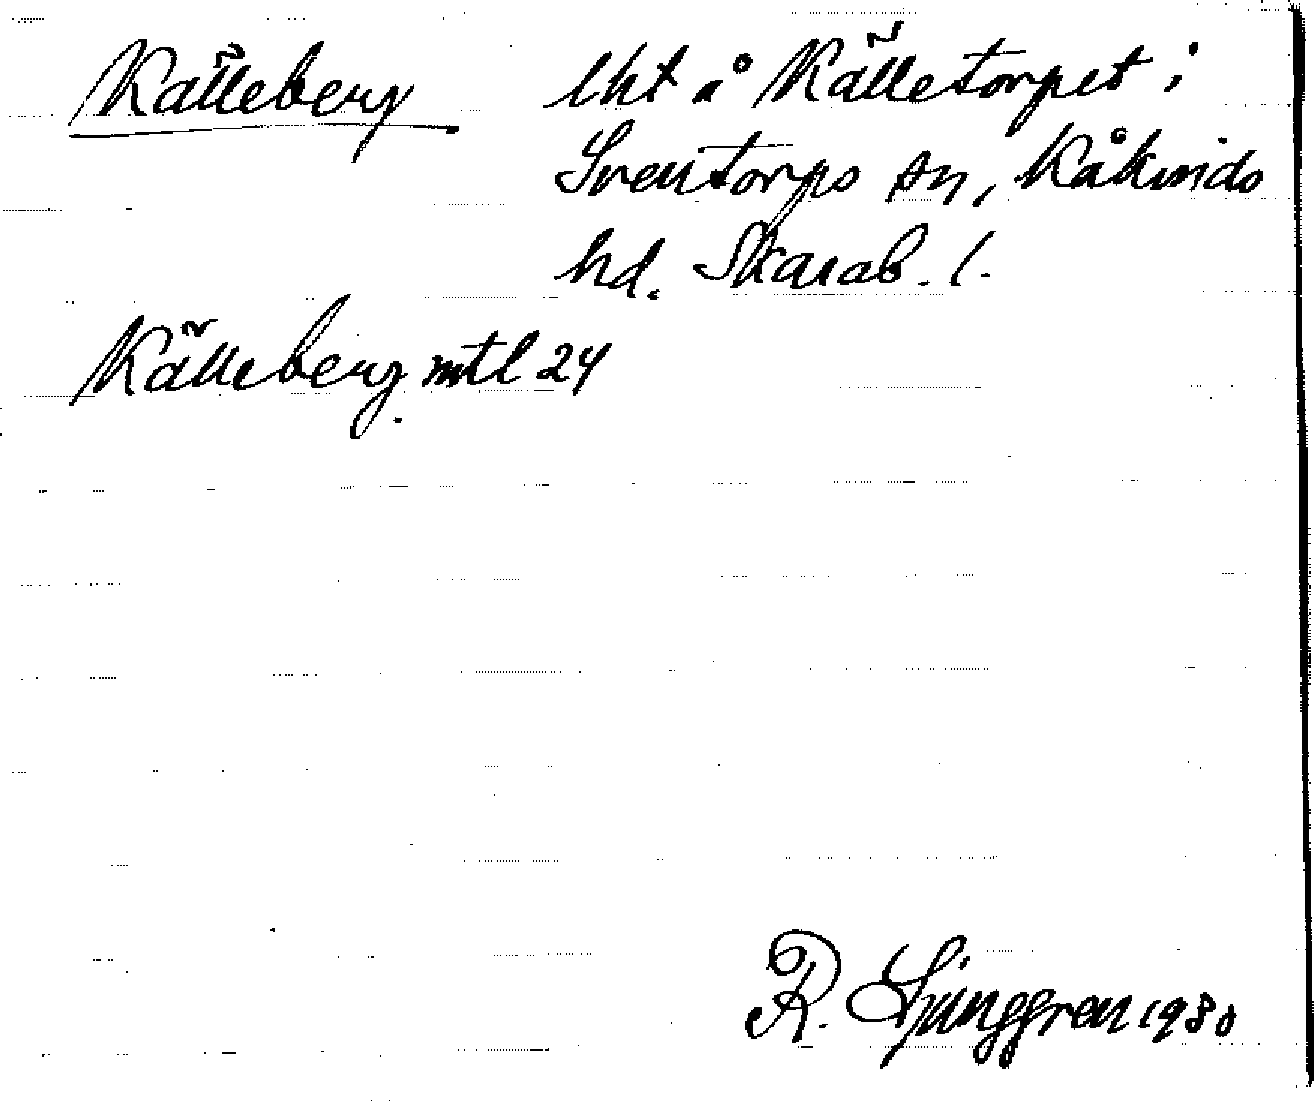 Källeberg lht å Källetorpet i
Sventorps sn, Kåkinds
hd. Skarab. l.
Källeberg mtl 24
R. Ljunggren 1930